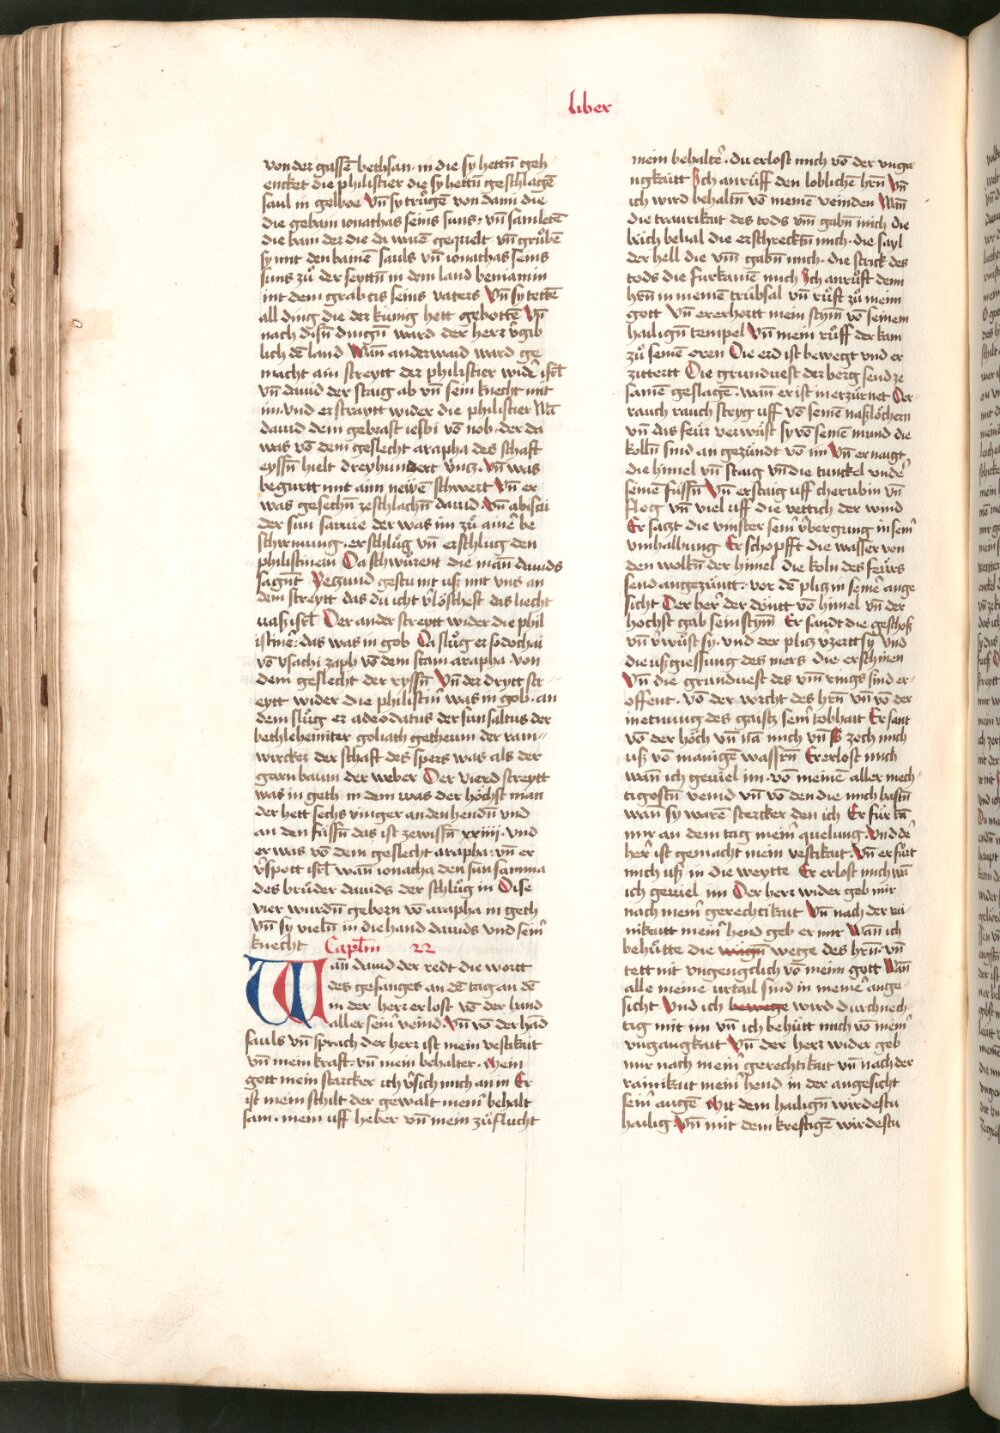 liber
von der gassē bethsan · in die sy hettn̄ geh
encket die philistier die sy hettn̄ geschlagē
saul in gelboe Vn̄ sy trůgē von dann die
die gebain ionathas seins suns · vn̄ samletē
die bain der die da warē gequelt · vn̄ grůbē
sy mit den bainē sauls vn̄ ionathas seins
suns zů der seyttn̄ in dem land beniamin
int dem grab cis seins vaters Vn̄ sy tettē
all ding die der kunig hett gebottē Vn̄
nach disn̄ dingn̄ ward der herr v̉gib
lich dē land Wan̄ anderwaid ward ge
macht ain streytt der philistier wid̉ isrl̄
vn̄ dauid der staig ab vn̄ sein knecht mit
im · vnd er straytt wider die philistier Wā
dauid dem gebrast iesbi vō nob · der da
was vō dem geslecht arapha des schaft
eyssn̄ hielt dreyhundert vntz · vn̄ was
begurtt mit ainn newē schwert Vn̄ er
was gesechn̄ zeschlachn̄ dauid Vn̄ abisai
der sun saruie der was im zů ainē be
schirmung · er schlůg vn̄ erschlug den
philistinern Da schwůrent die man̄ dauids
sagn̄t Yeczund gestu nit usz mit vns an
dem streytt das du icht v̉löschest das liecht
uasz isrl̄ Der ander streytt wider die phil
istinē · das was in gob Da slůg er sodochai
vō vsachi zaph vō dem stam arapha · von
dem geslecht der ryssn̄ Vn̄ der drytt str
eytt wider die philistin̄ was in gob · an
dem slůg er adeodatus der sun saltus der
bethlehemiter goliath getheum der ram
wircker der schaft des spers was als der
garn baum der weber Der vierd streytt
was in geth in dem was der höchst man
der hett sechs vinger an den hendn̄ und
an den fůssn̄ das ist zewissn̄ xxiiii · vnd
er was vō dem geslecht arapha · vn̄ er
v̉spott isrl̄ wan̄ ionacha den sun samma
des brůder dauids der schlůg in Dise
vier wurdn̄ geborn vō arapha in geth
vn̄ sy vieln̄ in die hand dauids vnd sein̉
knecht Caplm̄ 22
Wan̄ dauid der redt die wortt
des gesanges an dē tag an dē
in der herr erlost vō der hand
aller sein̉ veind · Vn̄ vō der hād
sauls vn̄ sprach der herr ist mein vestikait
vn̄ mein kraft · vn̄ mein behalter · Mein
gott mein starcker ich v̉sich mich an in Er
ist mein schilt der gewalt mein̉ behalt
sam · mein uff heber vn̄ mein zůflucht
mein behaltē · du erlost mich vō der vnger
ngkaitt Ich anrůff den loblichē hrn̄ Vn̄
ich wird behaltn̄ vō meinē veinden Wan̄
die traurikait des tods vm̄ gabn̄ mich die
bäch belial die erschrecktn̄ mich · die sayl
der hell die vm̄ gabn̄ mich · die strick des
tods die fürkamē mich Ich anrůft dem
hrn̄ in meinē trůbsal vn̄ růft zů meim
gott Vn̄ er erhortt mein stym̄ vō seinem
hailign̄ tempel Vn̄ mein růff der kam
zů seinē oren Die erd ist bewegt vnd er
zittertt Die gruntuest der berg send ze
samē geslagē · wan̄ er ist in erzürnet Der
rauch rauch steyg uff vō seinē naßlöchern
vn̄ das feür verwüst sy vō seinē mund die
kolln̄ sind an gezündt vō im Vn̄ er naigt
die himel vn̄ staig vn̄ die tunckel vnd̉
seinē fůssn̄ Vn̄ er staig uff cherubin vn̄
flog vn̄ viel uff die vettich der wind
Er satzt die vinster sein̉ v̉bergrung in sein̉
vmhalbung Er schopfft die wasser von
den wolkn̄ der himel die koln des feürs
send angezüntt · vor dē plicz in seinē ange
sicht Der her̉ der donrtt vō himel vn̄ der
hochst gab sein stym̄ Er sandt die geschosz
vn̄ v̉wůst sy · vnd der plicz vzertt sy Vnd
die usgiessung des mers die erschinen
Vn̄ die gruntuest des vm̄rings sind er
offent · vō der vorcht des hrn̄ vn̄ vō der
inetnung des gaists sein̉ tobhait Er sant
vō der höch vn̄ nā mich vn̄ zoch mich
usz vō manigē wassrn̄ Er erlost mich
wan̄ ich geuiel im · vō meinē aller mech
tigostn̄ veind vn̄ vō den die mich hastn̄
wan̄ sy warē stercker den ich Er für kā
mir an dem tag mein̉ quelung · Vnd d̉
her̉ ist gemacht mein vestikait · Vn̄ er fürt
mich usz in die weytte Er erlost mich wā
ich geuiel im Der herr wider geb mir
nach mein̉ gerechtikait Vn̄ nach der rai
nikaitt mein̉ hend geb er mir Wan̄ ich
behůtte die wege des hrn̄ · vn̄
tett nit vngengclich vō meim gott Wan̄
alle meine vrtail sind in meinē ange
sicht Vnd ich wird durchnech
tig mit im vn̄ ich behůtt mich vō mein̉
vngangkait Vn̄ der herr wider geb
mir nach mein̉ gerechtikait vn̄ nach der
rainikait mein̉ hend in der angesicht
sein̉ augē Mit dem hailign̄ wirdestu
hailig Vn̄ mit dem kreftigē wirdestu